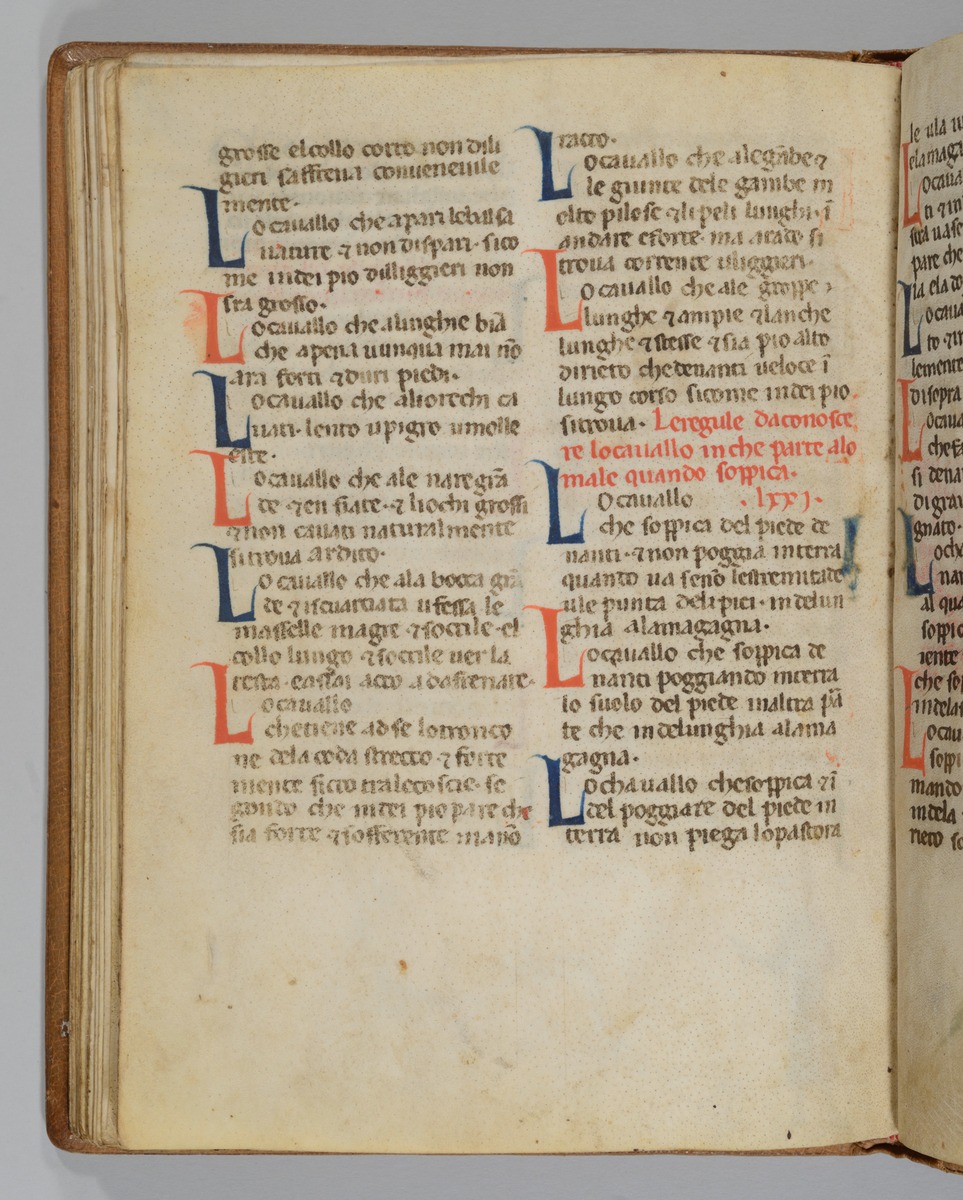 grosse elcollo corto non dili
gieri saffrena conueneuile
mente·
Locauallo che apari lebalsa
nature ⁊ non dispari· sico
me indei pio dilliggieri non
fra grosso·
Locauallo che alunghie biā
che apena uunqua mai nō
ara forti ⁊duri piedi·
Locauallo che aliorechi ca
uati· lento upigro umolle
este·
Locauallo che ale nare grā
de ⁊en fiate· ⁊liochi grossi
⁊non cauati naturalmente
sitroua ardito·
Locauallo che ala bocca grā
de ⁊isquarciata ufessa le
masselle magre ⁊sottile· el
collo lungo ⁊sottile uer la
testa· eassai acto adafrenare·
Locauallo
chetiene adse lotronco
ne dela coda strecto ⁊ forte
mente sicto tralecoscie· se
gondo che indei pio pare che
sia forte ⁊sofferente manō
ratto·
Locauallo che alegābe ⁊
le giunte dele gambe m
olto pilose ⁊li peli lunghi· ī
andare eforte· ma arado si
troua corrente uliggieri·
Locauallo che ale groppe
lunghe ⁊ampie ⁊lanche
lunghe ⁊stesse ⁊sia pio alto
dirieto chedenanti ueloce ī
lungo corso sicome indei pio
sitroua· Leregule daconosce
re locauallo inche parte alo
male quando soppica·
Locauallo ·lxxj·
che soppica del piede de
nanti· ⁊non poggia interra
quando ua senō lestremitade
ule punta deli pici· indelun
ghia alamagagna·
Locauallo che soppica de
nanti poggiando interra
lo suolo del piede inaltra pā
te che indelunghia alama
gagna·
Lochauallo chesoppica ⁊ī
del poggiare del piede in
terra non piega lopastora